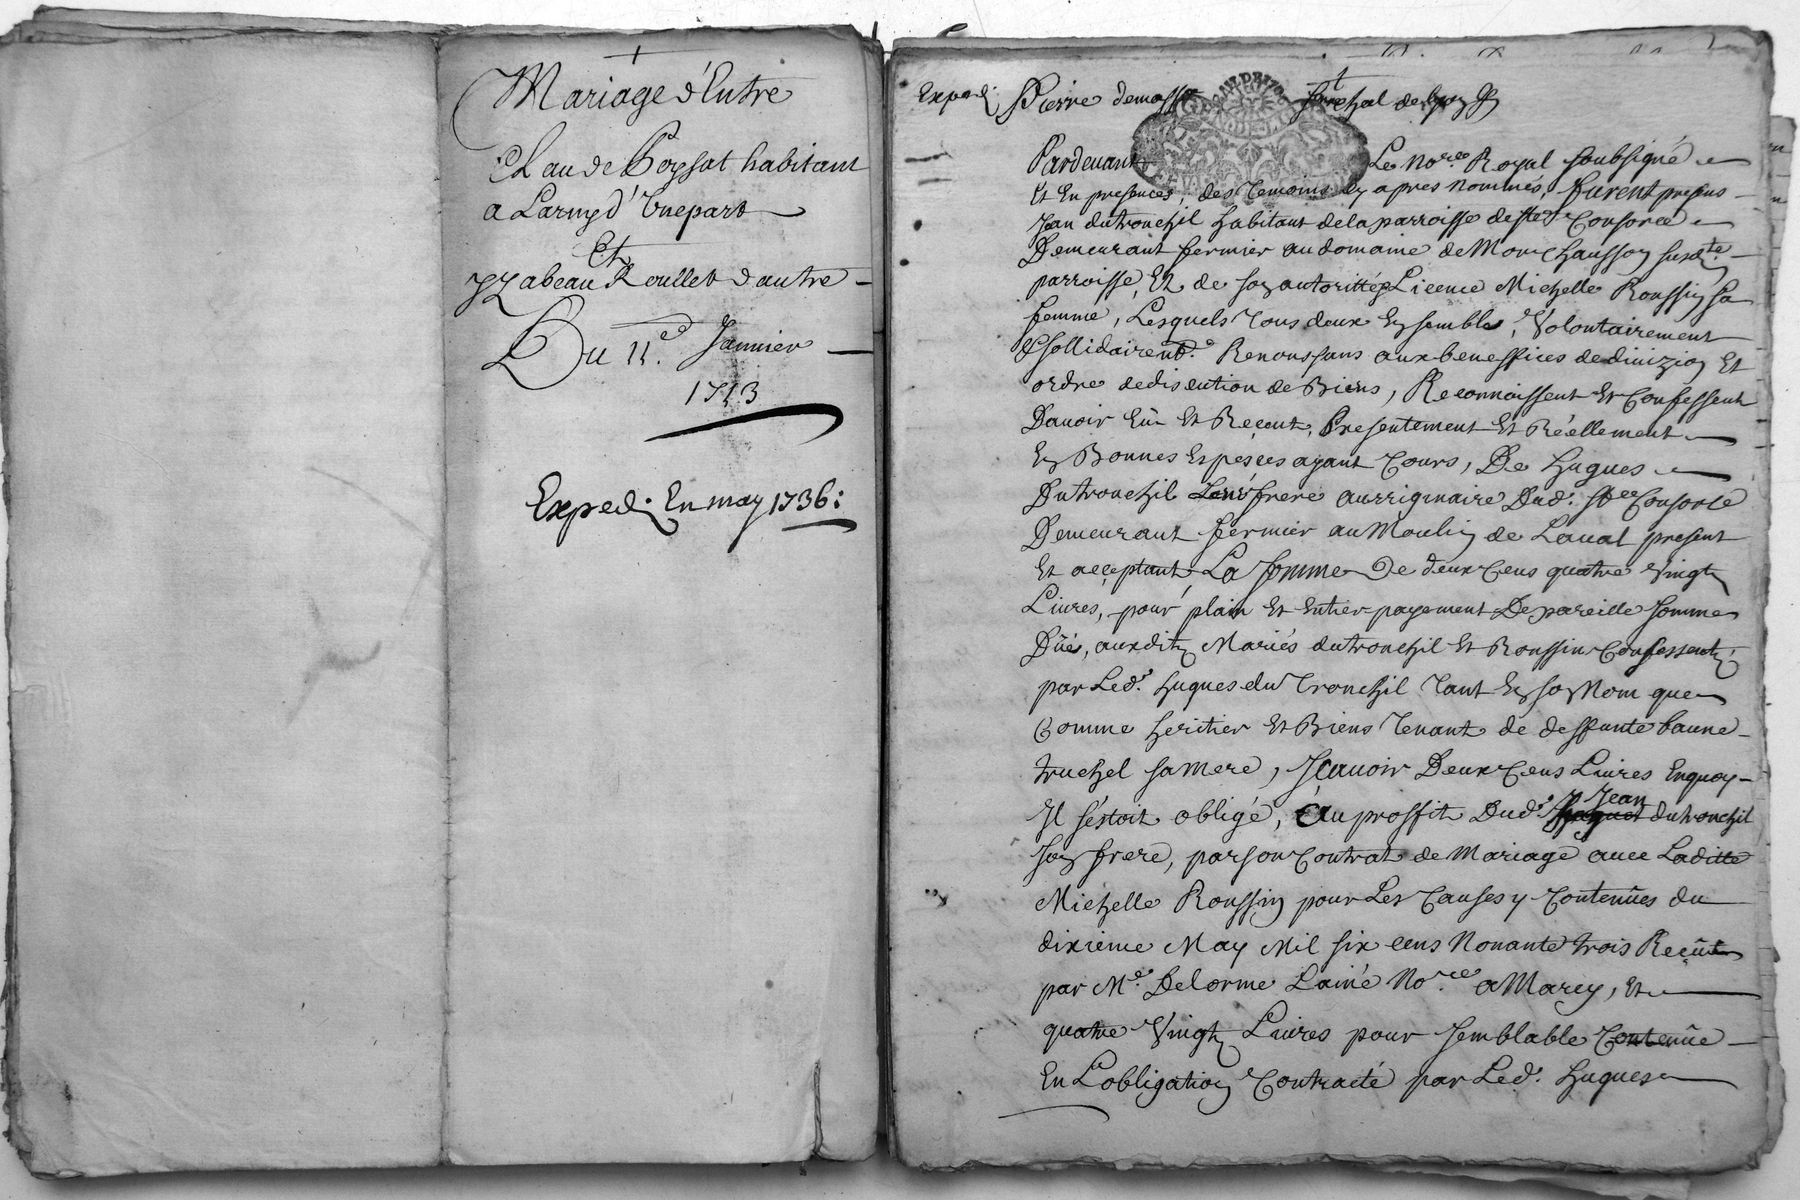 Mariage d'Entre
Claude Poysat habitant
a Larmyd' Vnepart
Et
Yzabeau Roullet d'autre
Du 11.e Januier
1713
Exped: En may 1736:
Exped: Pierre
Pardeuant Le No.re Royal soubsigné
Et En presences, des Temoins cy apres nommés, furent presens
Jean dutronchil habitant de la parroisse de Ste Consorce
Demeurant fermier au domaine de Monchausson susd.te
parroisse, Et de son autoritté Licence Michelle Roussin sa
femme, Lesquels Tous deux Ensemble, Volontairement
& sollidairem.t Renonssans aux beneffices de diuizion Et
ordre de discution de Biens, Reconnoissent Et Confessent
D'auoir Eû Et Reçeut, Presentement Et Réellement
En Bonnes Espesces ayant Cours, De Hugues
Dutronchil Leur frere aurriginaire Dud. Ste Consorce
Demeurant fermier au Moulin de Laual present
Et acçeptant La somme De deux Cens quatre Vingt
Liures, pour plain Et Entier payement De pareille somme
Düe, auxdits Mariés dutronchil Et Roussin Confessentz
par Led. Hugues du Tronchil Tant En son Nom que
Comme heritier Et Biens Tenant de deffunte baune
truchel sa Mere, Scauoir Deux Cens Liures Enquoy
Il s'éstoit obligé, Au proffit Dud. Jean dutronchil
son frere, par son Contrat de Mariage auec Laditte
Michelle Roussin pour Les Causes y Contenües du
dixieme May Mil six cens Nonante trois Reçüe
par M.e Delorme L'ainé No.re a Marcy, Et
quatre Vingt Liures pour semblable Contenüe
En L'obligation Contracté par Led. Hugues